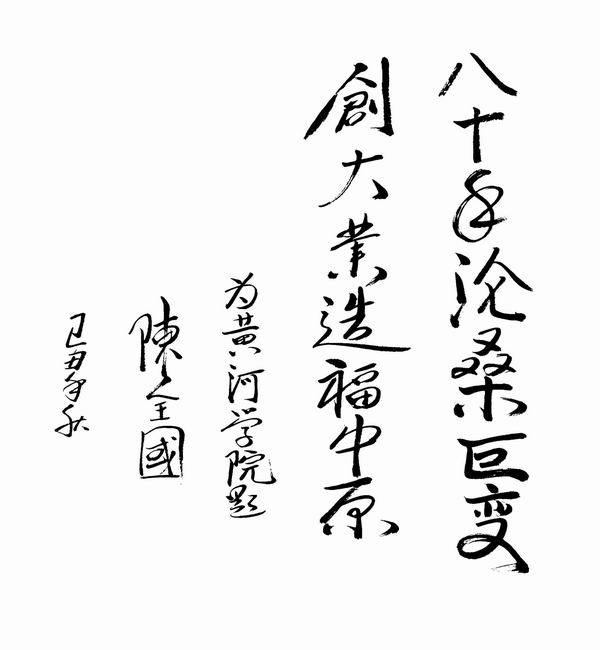 八十年沧桑巨变
創大業造福中原
为黄河学院题
陳全國
己丑年秋